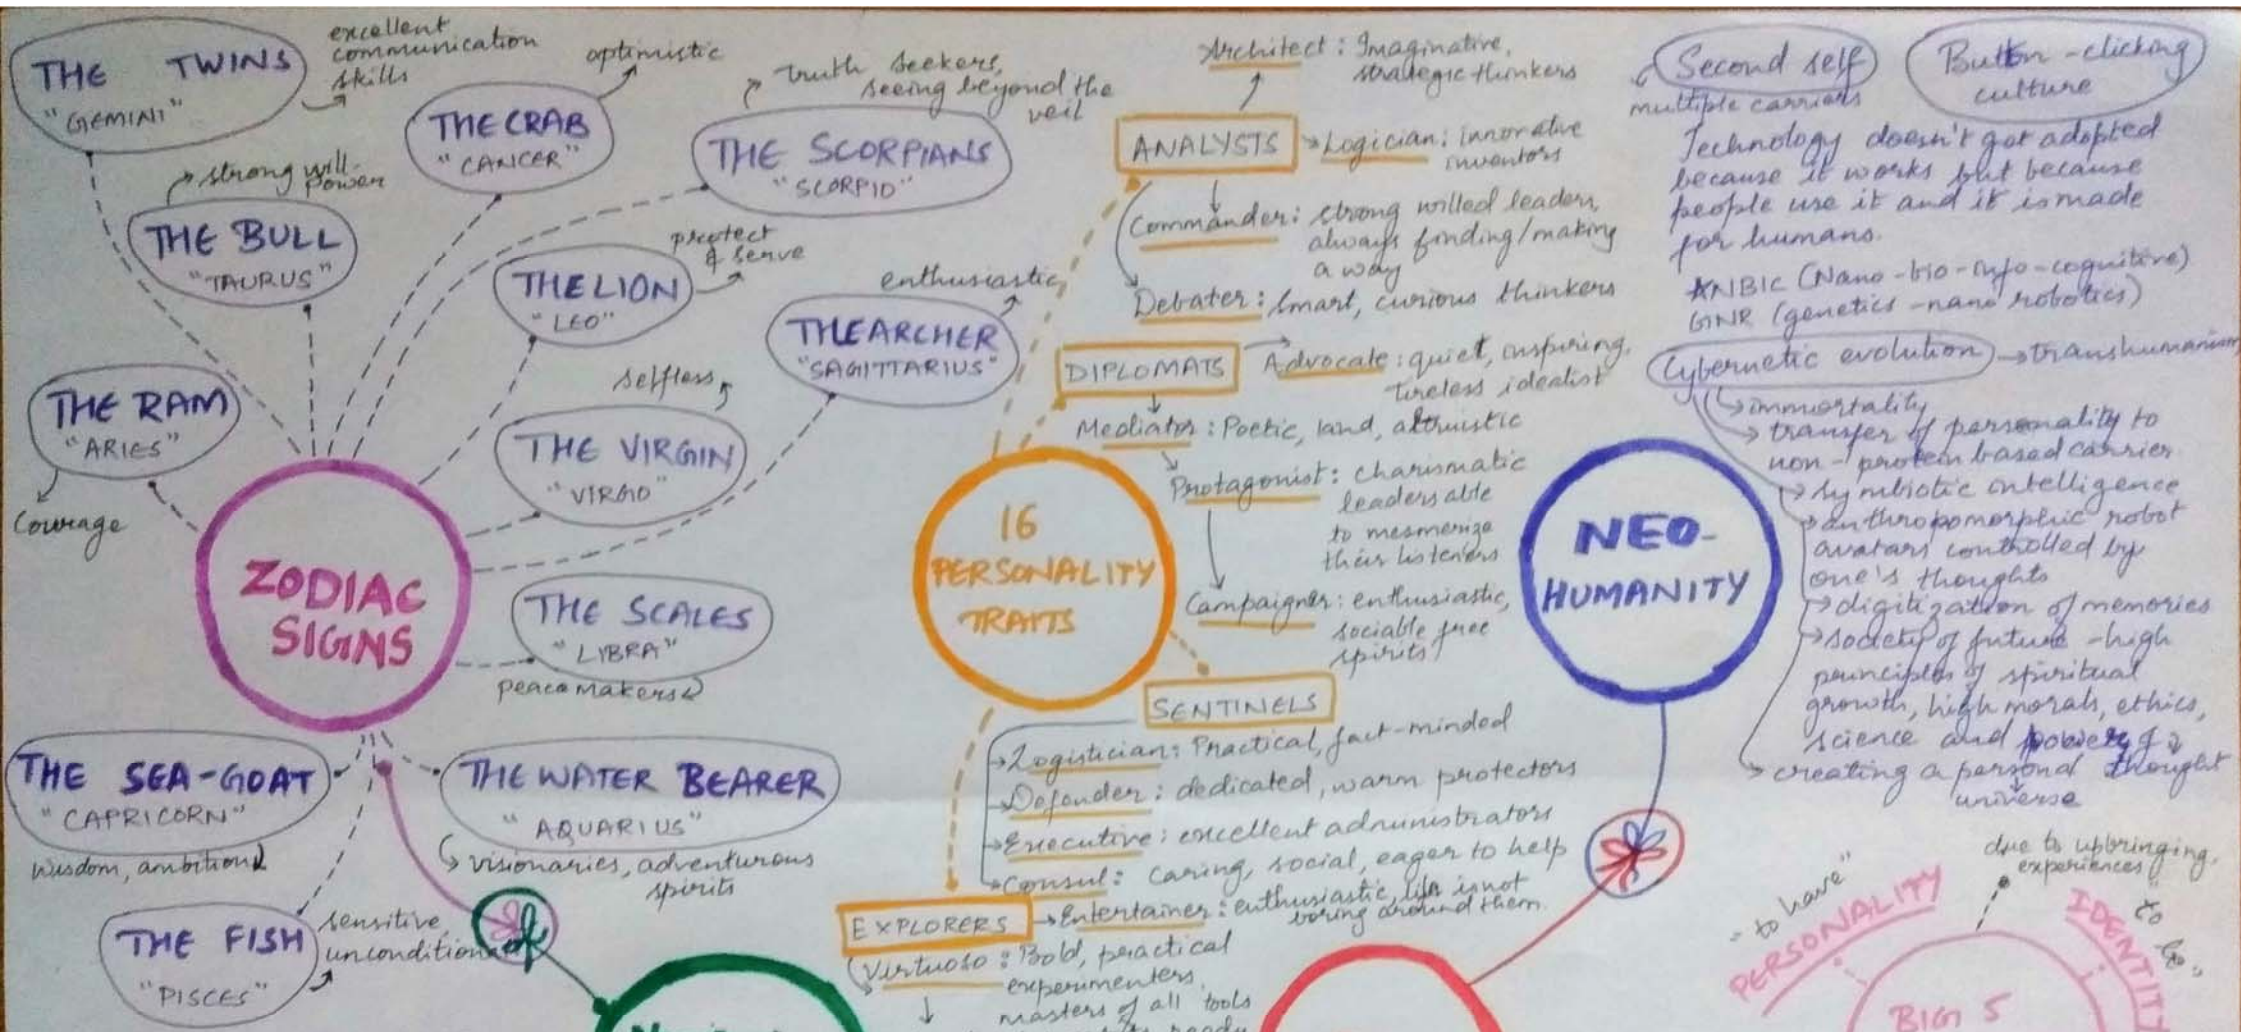 THE TWINS
"GEMINI"
excellent
communication
skills
THE CRAB
"CANCER"
optimistic
THE SCORPIANS
"SCORPIO"
truth seekers,
seeing beyond the
veil
THE BULL
"TAURUS"
strong will
power
THE LION
"LEO"
protect
& serve
THE ARCHER
"SAGITTARIUS"
enthusiastic
THE RAM
"ARIES"
Courage
THE VIRGIN
"VIRGO"
selfless
ZODIAC
SIGNS
THE SCALES
"LIBRA"
peacemakers
THE SEA-GOAT
"CAPRICORN"
Wisdom, ambition
THE WATER BEARER
"AQUARIUS"
visionaries, adventurous
spirits
THE FISH
"PISCES"
sensitive,
unconditional
16
PERSONALITY
TRAITS
ANALYSTS
Architect: Imaginative,
strategic thinkers
Logician: innovative
inventors
Commander: strong willed leaders,
always finding/making
a way
Debater: Smart, curious thinkers
DIPLOMATS
Advocate: quiet, inspiring,
tireless idealist
Mediator: Poetic, kind, altruistic
Protagonist: charismatic
leaders able
to mesmerize
their listeners
Campaigner: enthusiastic,
sociable free
spirits
SENTINELS
Logistician: Practical, fact-minded
Defender: dedicated, warm protectors
Executive: excellent administrators
Consul: caring, social, eager to help
EXPLORERS
Entertainer: enthusiastic, life is not
boring around them.
Virtuoso: Bold, practical
experimenters,
masters of all tools
ready
NEO-
HUMANITY
Second self
multiple carriers
Button-clicking
culture
Technology doesn't got adopted
because it works but because
people use it and it is made
for humans.
NBIC (Nano-bio-info-cognitive)
GNR (genetics-nano robotics)
Cybernetic evolution
transhumanism
immortality
transfer of personality to
non-protein based carrier
symbiotic intelligence
anthropomorphic robot
avatars controlled by
one's thoughts
digitization of memories
society of future -high
principles of spiritual
growth, high morals, ethics,
science and power of
thought
creating a personal
universe
due to upbringing,
experiences
"to have"
PERSONALITY
IDENTIT
"to be"
BIG 5